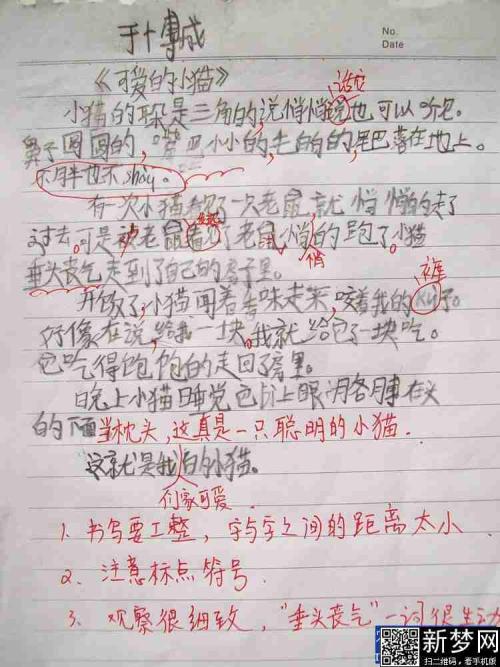 于博诚
No.
Date
《可爱的小猫》
小猫的朵是三角的,说悄悄说也可以听见。
话它
鼻子圆圆的,嘴巴小小的毛的的,尾巴落在地上。
不月半也不shòu。
有一次小猫看了一只老鼠,就悄悄的走了
发现
过去。可是被老鼠看了老鼠悄的跑了。小猫
悄
垂头丧气走到了自己的房子里。
裤
开饭了,小猫闻着香味走来,咬着我的ku子。
好像在说,给我一块,我就给它了一块吃。
它吃得饱饱的走回了房里。
晚上小猫睡觉它闭上眼用各月事在头
的下面当枕头,这真是一只聪明的小猫.
这就是我的小猫。
们家可爱
1. 书写要工整,字与字之间的距离太小
2. 注意标点符号
3. 观察很细致,“垂头丧气”一词很生动
新梦网
扫二维码,看手机版